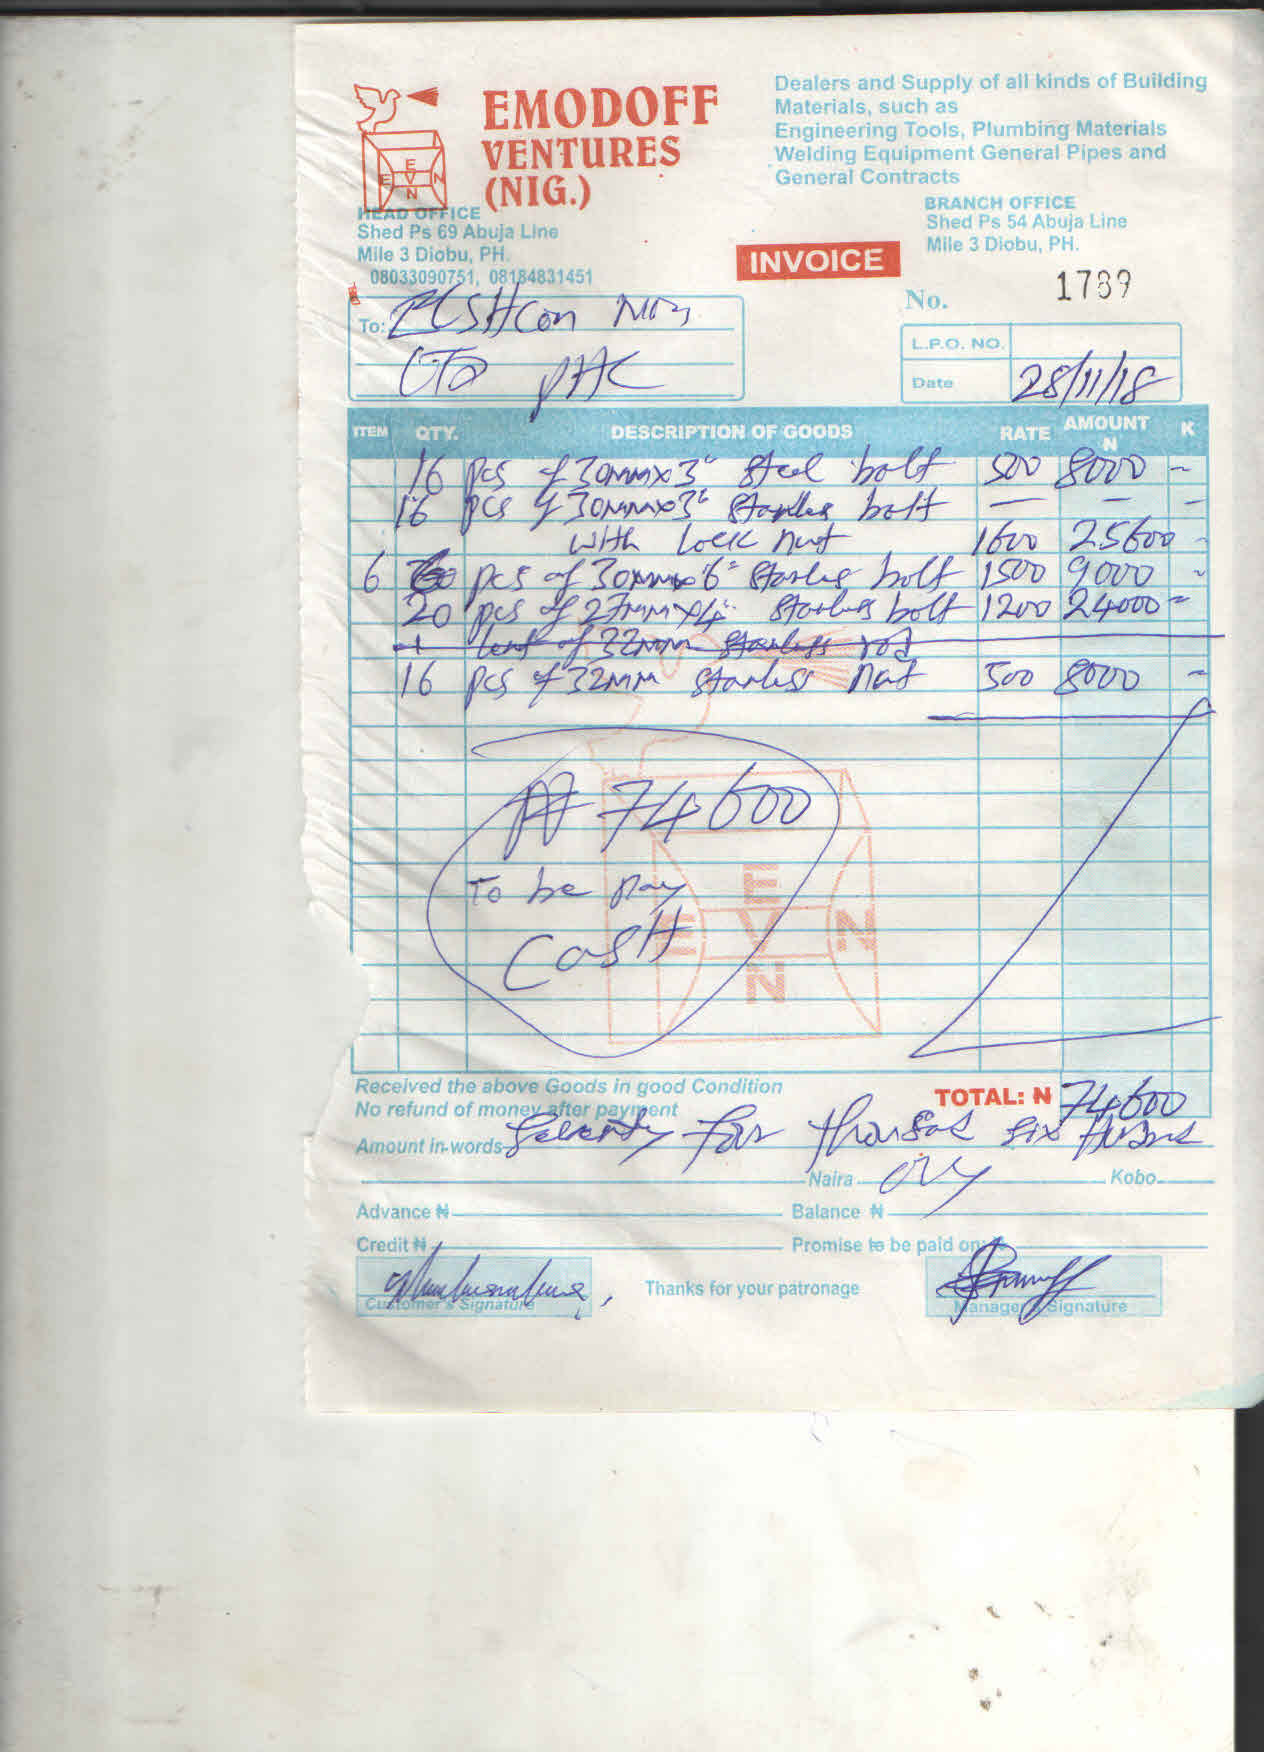 EMODOFF
VENTURES
(NIG.)
Dealers and Supply of all kinds of Building
Materials, such as
Engineering Tools, Plumbing Materials
Welding Equipment General Pipes and
General Contracts
E
E V N
N
HEAD OFFICE
Shed Ps 69 Abuja Line
Mile 3 Diobu, PH.
08033090751, 08184831451
BRANCH OFFICE
Shed Ps 54 Abuja Line
Mile 3 Diobu, PH.
INVOICE
No. 1789
To:
LTD PHC
L.P.O. NO.
Date 28/11/18
ITEM QTY. DESCRIPTION OF GOODS RATE AMOUNT N K
16 pcs of 30mmx3" Steel bolt 500 8000 -
16 pcs of 30mmx3" Stanless bolt - - -
with lock nut 1600 25600 -
6 pcs of 30mmx6" Stanless bolt 1500 9000 -
20 pcs of 27mmx4" Stanless bolt 1200 24000 =
1 lent of 32mm Stanless rod
16 pcs of 32mm Stanless Nut 500 8000 -
₦ 74600
To be pay
CasH
E
E V N
N
Received the above Goods in good Condition
No refund of money after payment
TOTAL: ₦ 74600
Amount in-words Seventy four thousand six
Naira only Kobo
Advance ₦ Balance ₦
Credit ₦ Promise to be paid on:
Customer's Signature Thanks for your patronage Manager's Signature